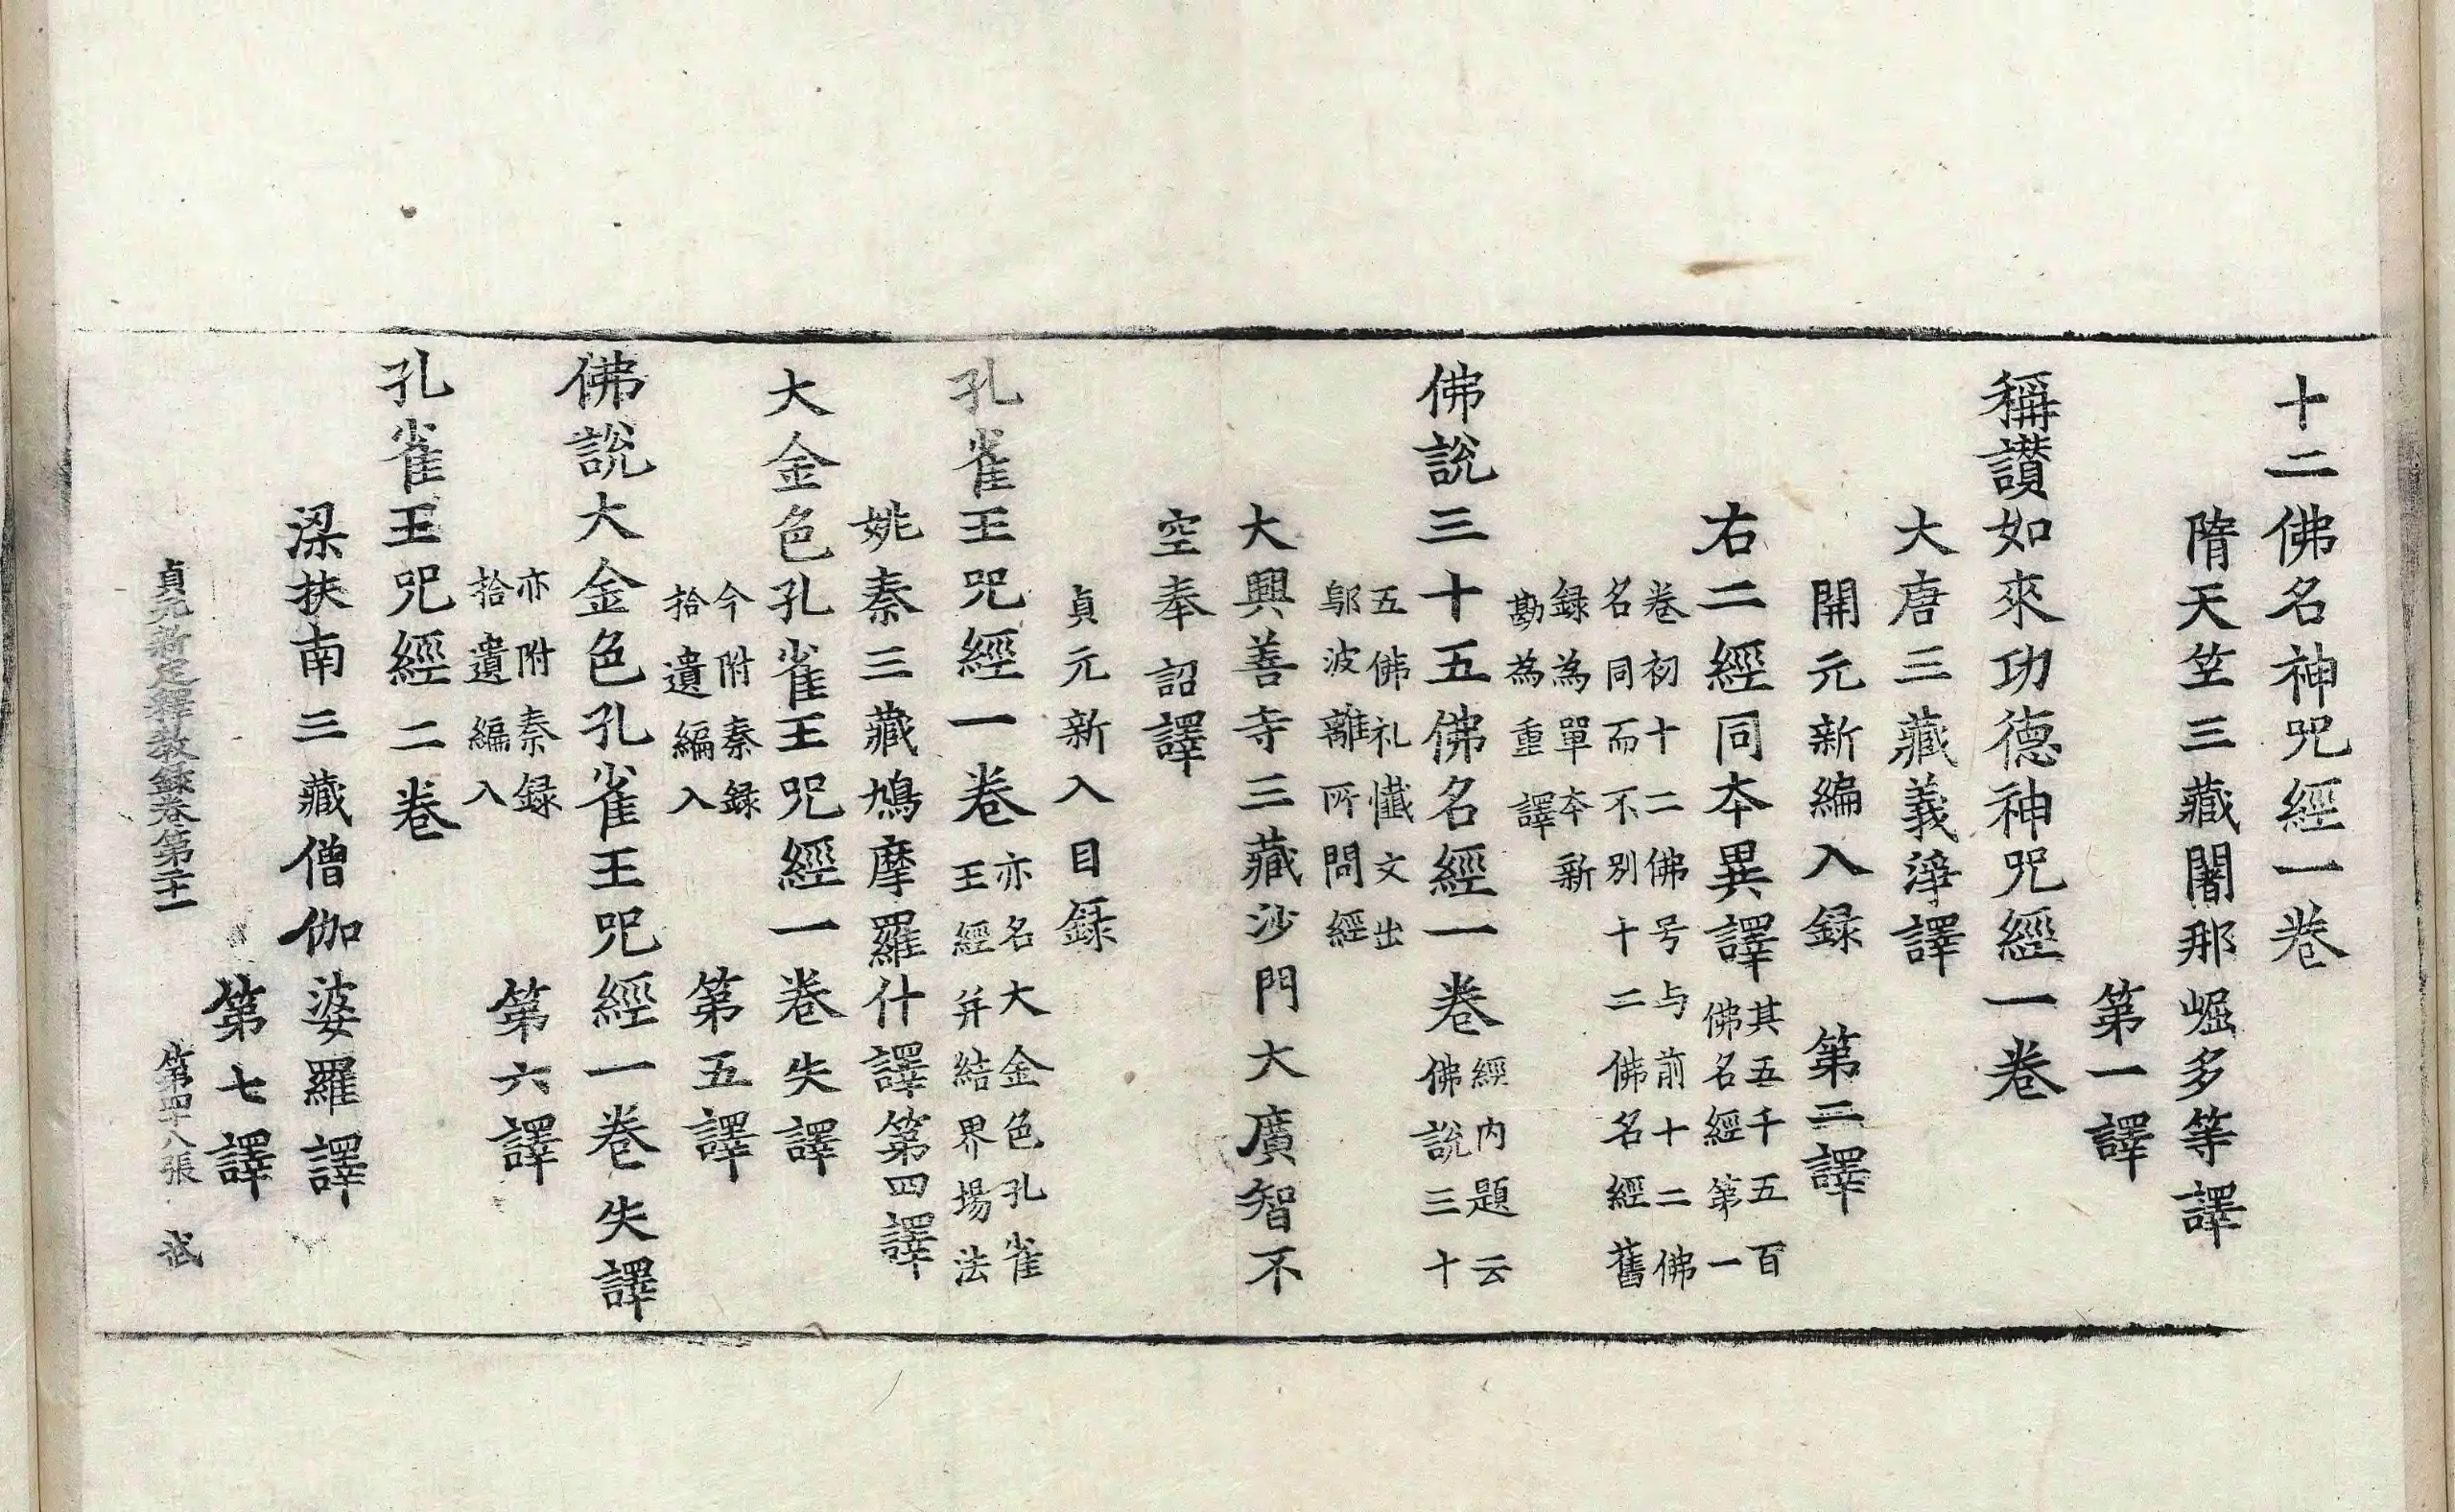 十二佛名神咒經一卷
隋天竺三藏闍那崛多等譯
第一譯
稱讃如來功德神咒經一卷
大唐三藏義淨譯
開元新編入録　第二譯
右二經同本異譯其五千五百
佛名經第一
卷初十二佛号与前十二佛
名同而不別十二佛名經舊
録為單本新
勘為重譯
佛說三十五佛名經一卷經内題云
佛說三十
五佛礼懺文出
鄔波離所問經
大興善寺三藏沙門大廣智不
空奉　詔譯
貞元新入目録
孔雀王咒經一卷亦名大金色孔雀
王經并結界場法
姚秦三藏鳩摩羅什譯第四譯
大金色孔雀王咒經一卷失譯
今附秦録
拾遺編入
第五譯
佛說大金色孔雀王咒經一卷失譯
亦附秦録
拾遺編入
第六譯
孔雀王咒經二卷
梁扶南三藏僧伽婆羅譯
第七譯
貞元新定釋教錄卷第二十一　第四十八張